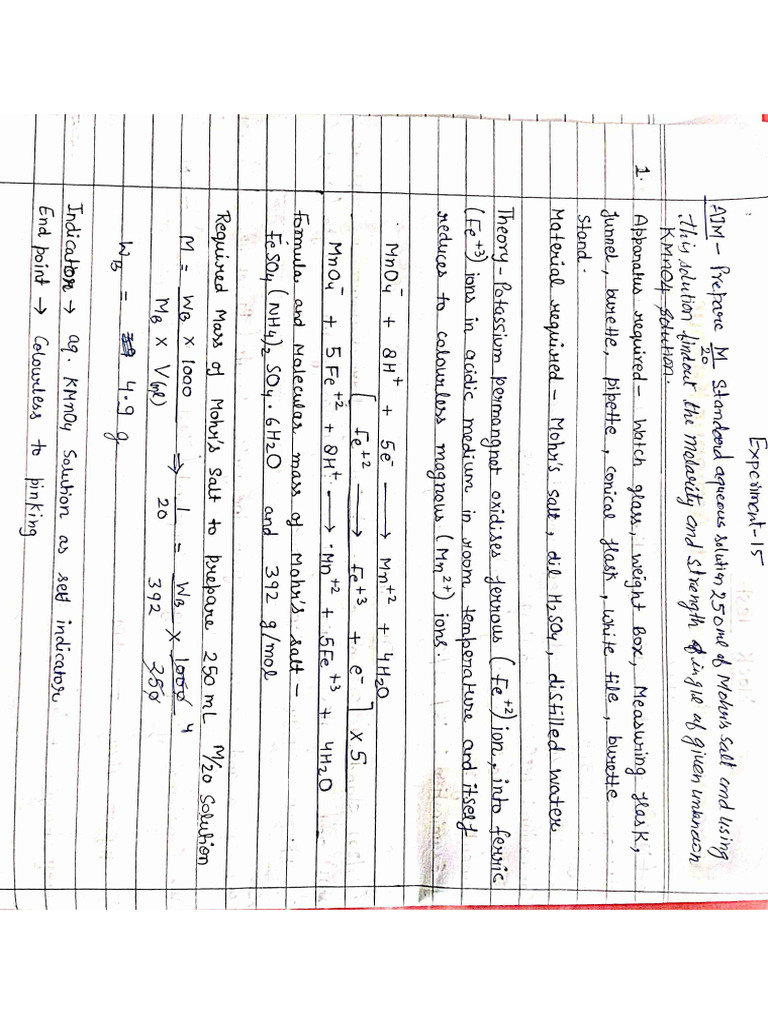 Experiment-15
AIM - Prepare M/20 Standard aqueous solution 250 ml of Mohr's salt and using
this solution findout the molarity and strength of in g/l of given unknown
KMnO4 solution.
1. Apparatus required - Watch glass, weight Box, Measuring flask,
funnel, burette, pipette, conical flask, white tile, burette
stand.
Material required - Mohr's salt, dil H2SO4, distilled water
Theory - Potassium permangnet oxidises ferrous (Fe+2) ion, into ferric
(Fe+3) ions in acidic medium in room temperature and itself
reduces to colourless magnous (Mn2+) ions.
MnO4- + 8H+ + 5e- ⟶ Mn+2 + 4H2O
[Fe+2 ⟶ Fe+3 + e-] x 5
MnO4- + 5Fe+2 + 8H+ ⟶ Mn+2 + 5Fe+3 + 4H2O
Formula and Molecular mass of Mohr's salt -
FeSO4(NH4)2SO4·6H2O and 392 g/mol
Required Mass of Mohr's salt to prepare 250 mL M/20 Solution
M = WB x 1000 ⟹ 1 = WB x 1000 4
MB x V(ml) 20 392 250
WB = 4.9 g
Indicator → aq. KMnO4 solution as self indicator
End point → Colourless to pinking